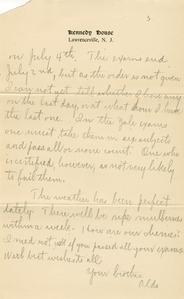 5
Kennedy House
Lawrenceville, N. J.
on July 4th. The exams end
July 2nd, but as the order is not given
I can not yet tell whether I have any
on the last day, or at what hour I have
the last one. In the Yale exams
one must take them in six subjects
and pass all or none count. One who
is certified however, is not very likely
to fail them.
The weather has been perfect
lately. There will be ripe mulberries
within a week. How are our cherries?
I need not ask if you passed all your exams.
With best wishes to all
Your brother
Aldo